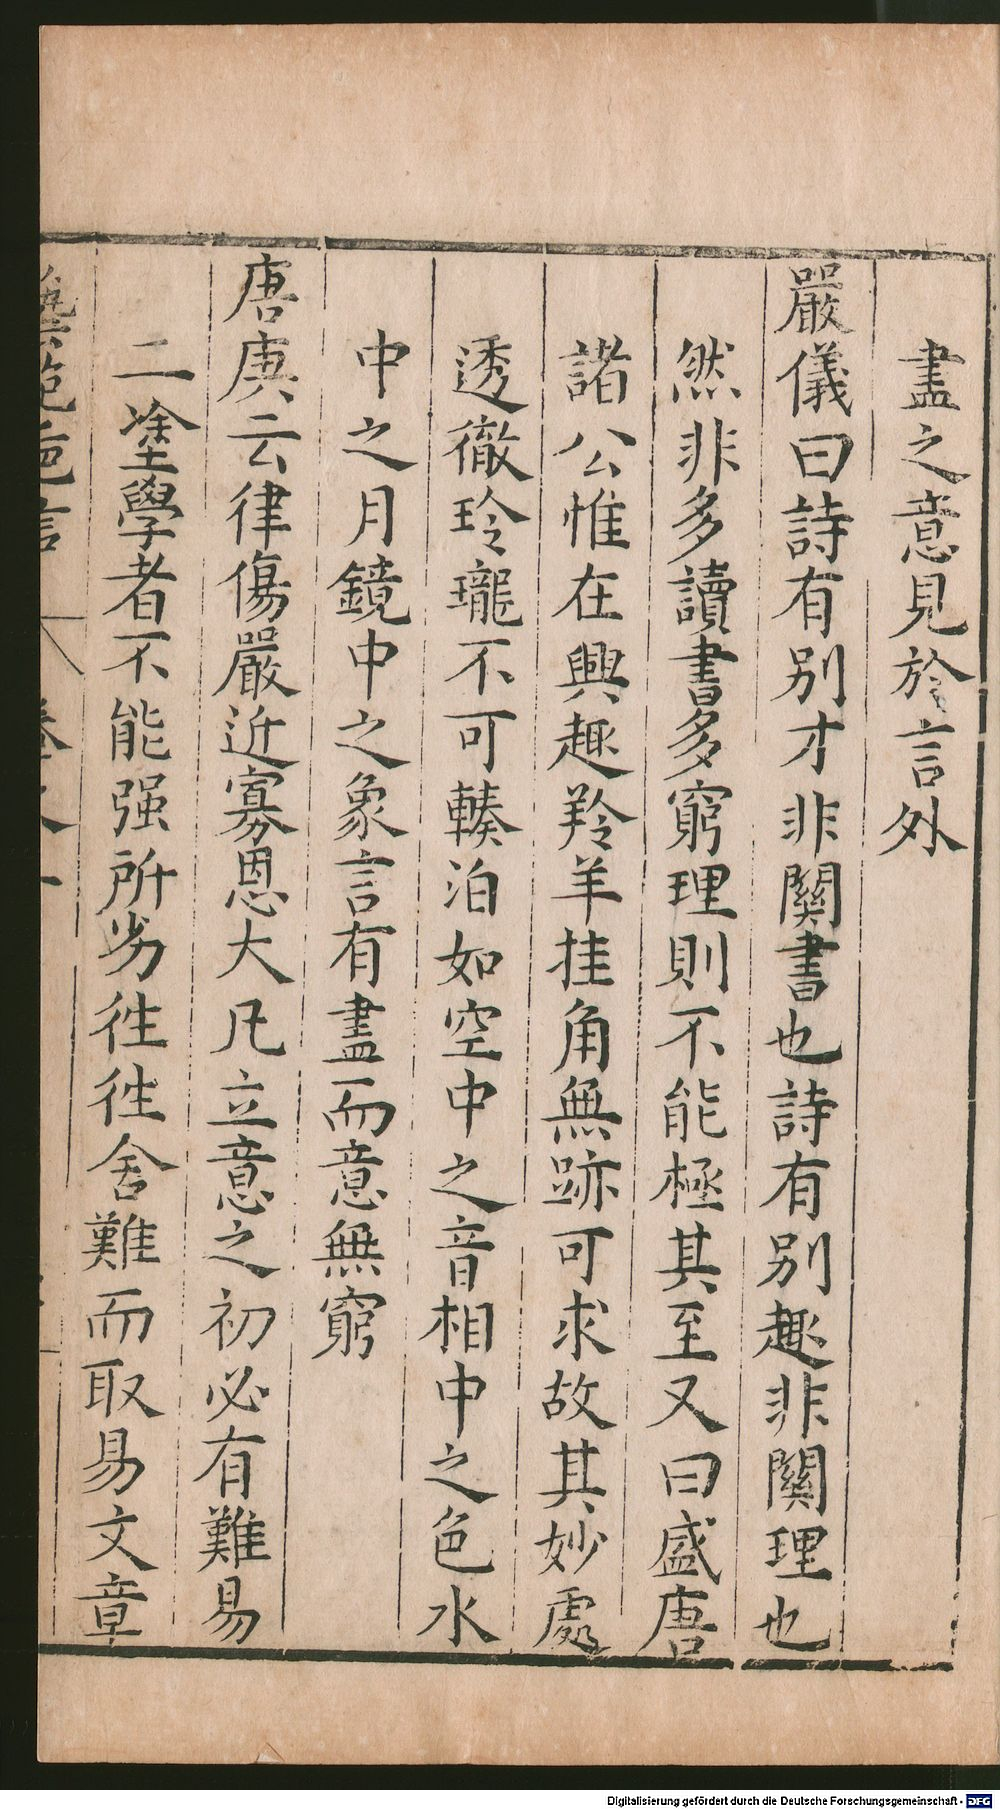 盡之意見於言外
嚴儀曰詩有别才非關書也詩有别趣非關理也
然非多讀書多窮理則不能極其至又曰盛唐
諸公惟在興趣羚羊挂角無跡可求故其妙處
透徹玲瓏不可輳泊如空中之音相中之色水
中之月鏡中之象言有盡而意無窮
唐庚云律傷嚴近寡恩大凡立意之初必有難易
二塗學者不能强所劣徃徃舍難而取易文章
藝苑巵言 卷之一
Digitalisierung gefördert durch die Deutsche Forschungsgemeinschaft - DFG